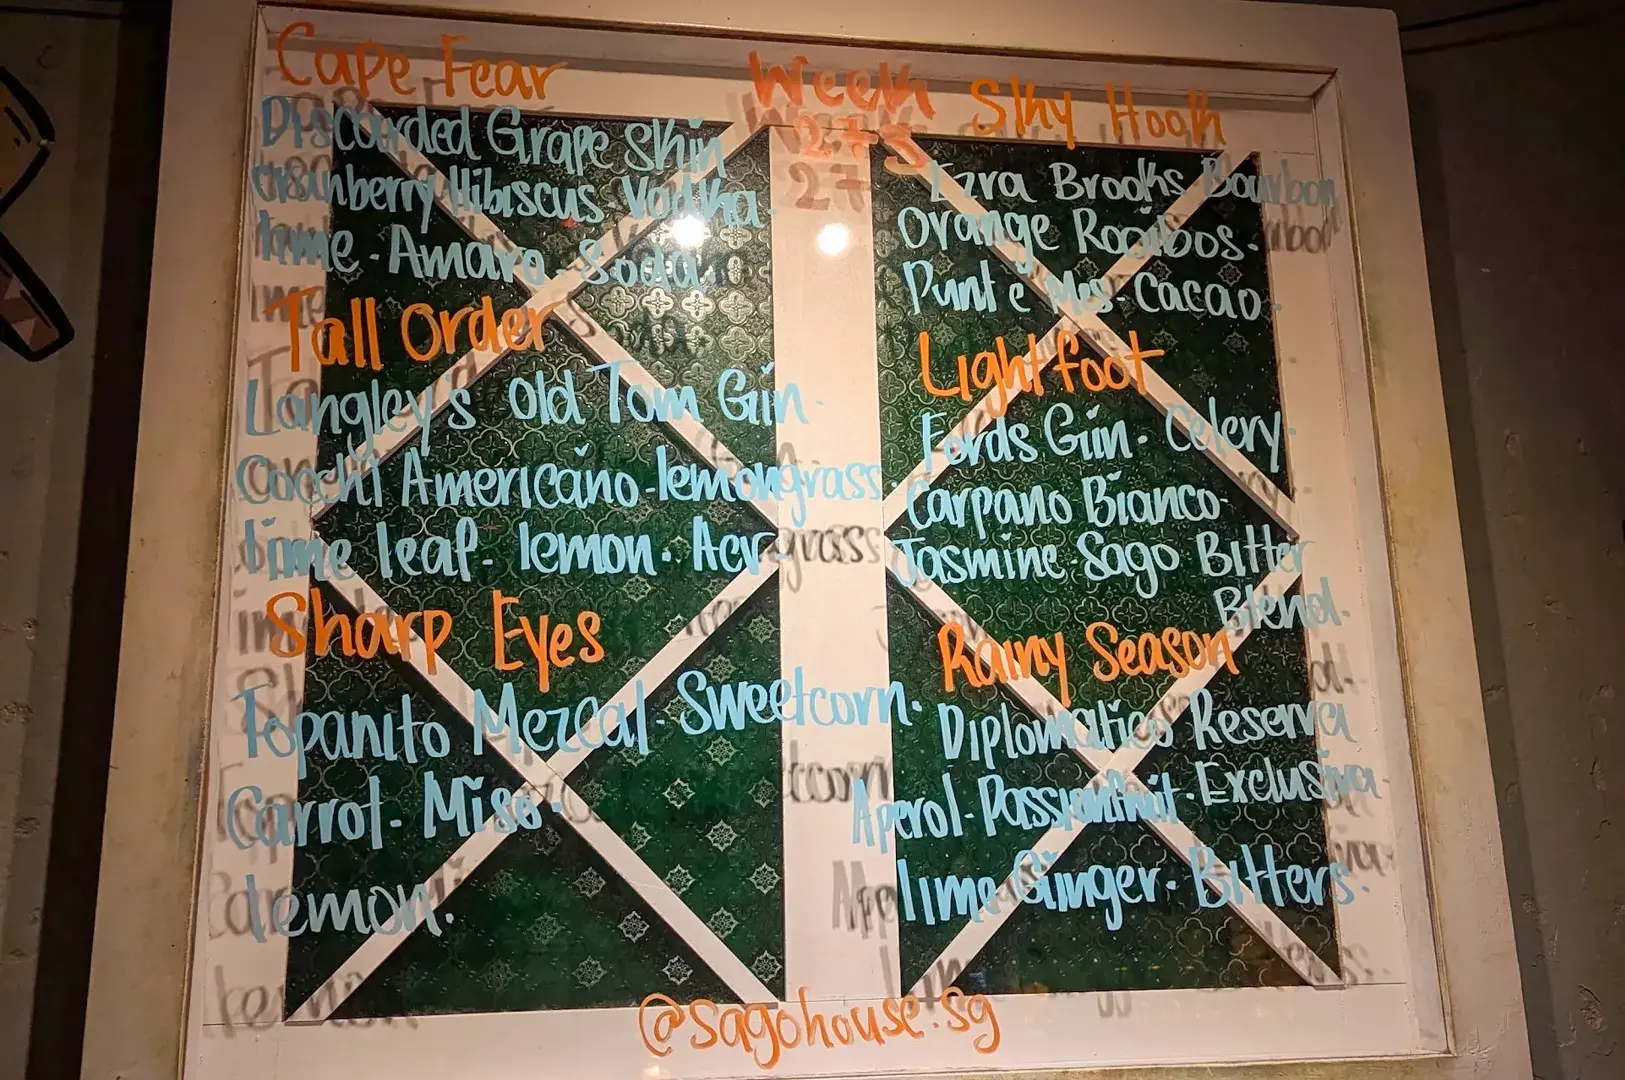 Cape Fear
Discarded Grape Skin
Cranberry Hibiscus Vodka.
lime. Amaro. Soda.
Tall Order
Langley's Old Tom Gin.
Cocchi Americano. lemongrass.
lime leaf. lemon. Acv
Sharp Eyes
Topanito Mezcal. Sweetcorn.
Carrot. Miso.
lemon.
Week
273
Sky Hook
Ezra Brooks Bourbon
Orange Rooibos.
Punt e Mes. Cacao.
Lightfoot
Fords Gin. Celery.
Carpano Bianco.
Jasmine. Sago Bitter
Blend.
Rainy Season
Diplomatico Reserva
Exclusiva.
Aperol. Passionfruit.
lime Ginger. Bitters.
@sagohouse.sg